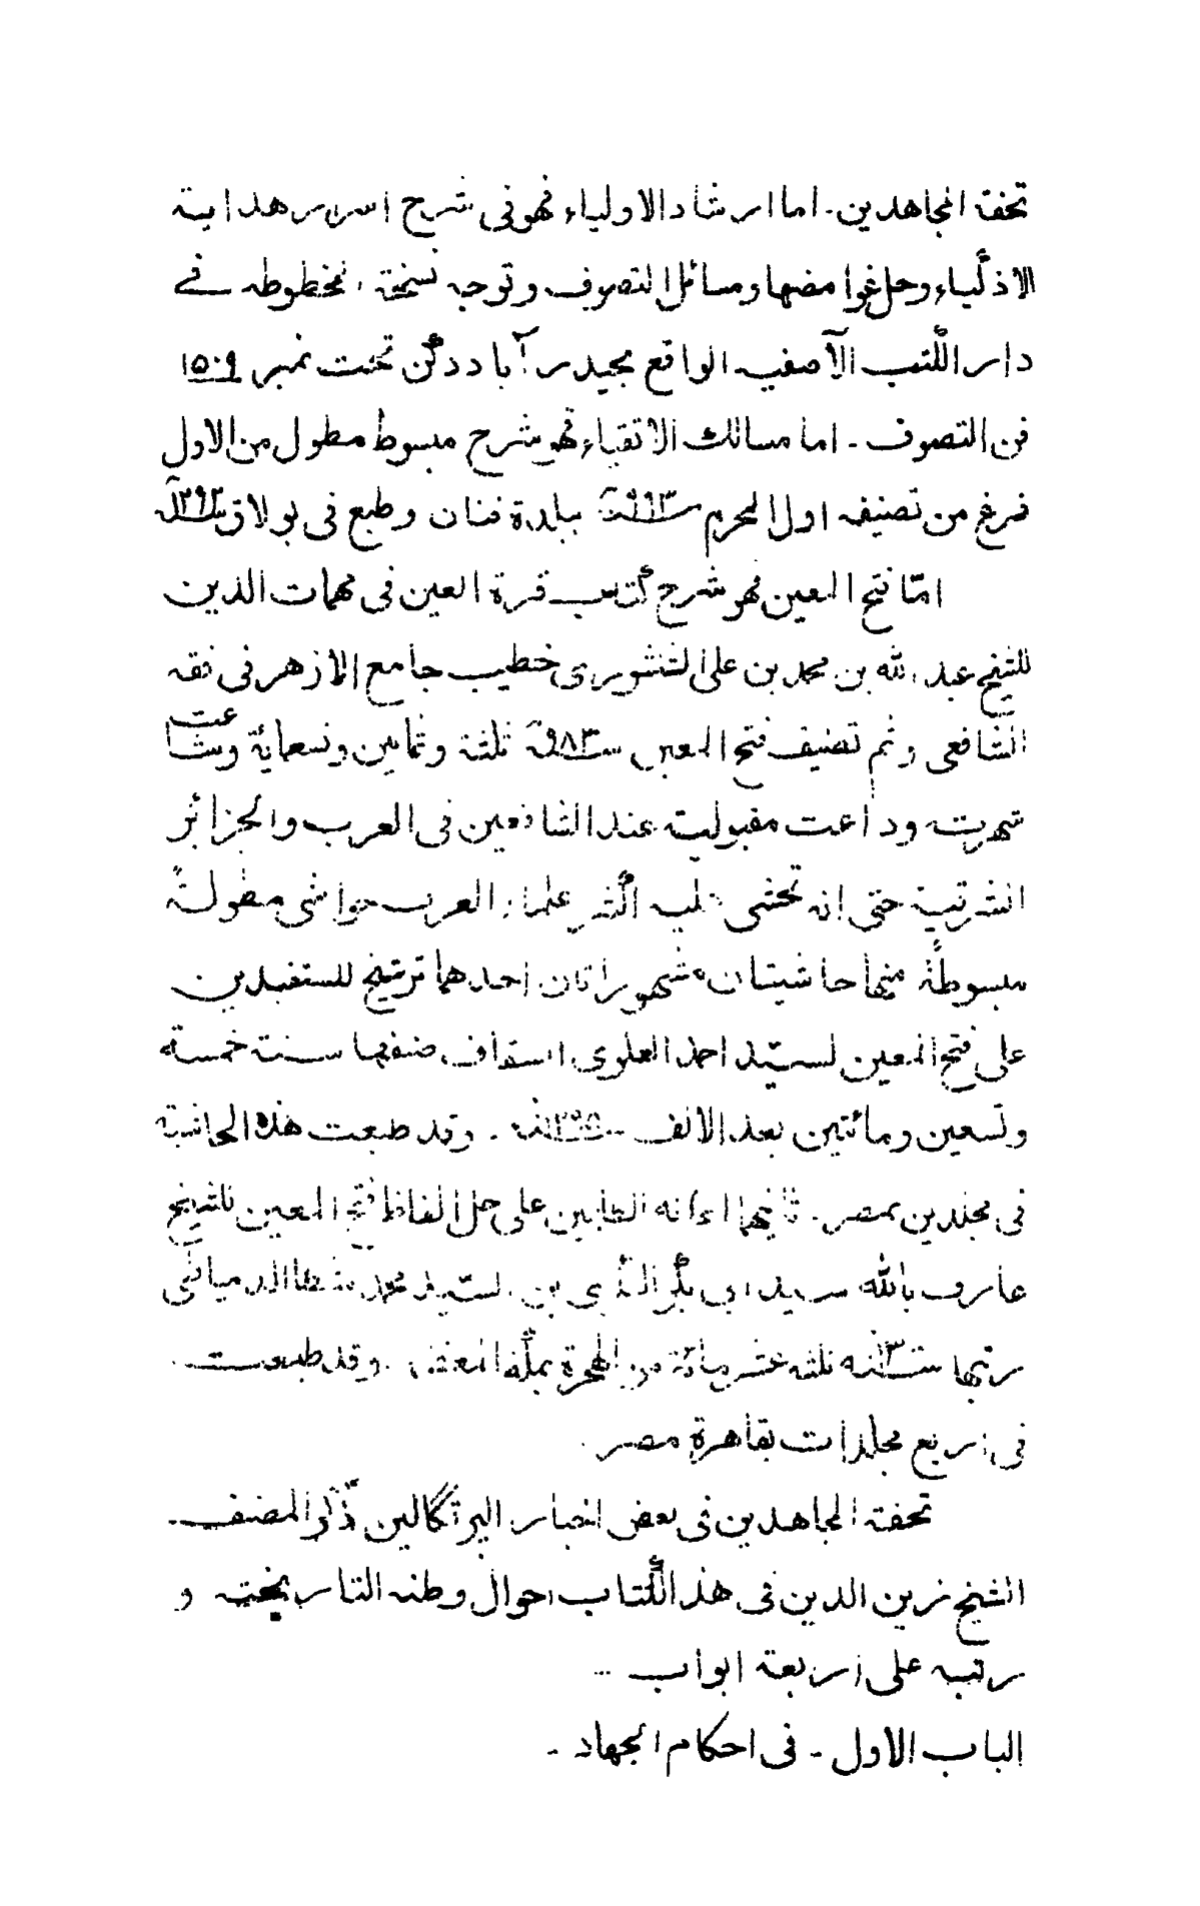 تحفة المجاهدين - اما ارشاد الاولياء فهو فى شرح اسرار هداية
الاذكياء وحل غوامضها ومسائل التصوف وتوجد نسخة مخطوطه فے
دار الكتب الآصفيه الواقع بحيدر آباد دكن تحت نمبر ١٥٠٩
فن التصوف - اما مسالك الاتقياء فهو شرح مبسوط مطول من الاول
فرغ من تصنيفه اول المحرم سنة ٩٩٣ ببلدة فنان وطبع فى بولاق سنة ١٢٩٣
امّا فتح المعين فهو شرح كتاب قرة العين فى مهمات الدين
للشيخ عبد الله بن محمد بن على الشنشورى خطيب جامع الازهر فى فقه
الشافعى وتم تصنيف فتح المعين سنة ٩٨٣ ثلثة وثمانين وتسعماية وشاعت
شهرته وذاعت مقبوليته عند الشافعين فى العرب والجزائر
الشرقية حتى انه تحشى عليه اكثر علماء العرب حواشى مطولةً
مبسوطةً منها حاشيتان مشهوراتان احدهما ترشيخ المستفيدين
على فتح المعين لسيّد احمد العلوى السقاف صنفها سنة خمسة
وتسعين ومائتين بعد الالف ١٢٩٥ - وقد طبعت هذه الحاشية
فى مجلدين بمصر - ثانيها اعانه الطالبين على حل الفاظ فتح المعين للشيخ
عارف بالله سيد ابى بكر الـ بن السيّد محمد شطا الدمياطى
رتبها سنة ١٣٠٠ ثلثه عشر مائة من الهجرة بمكة المعظمة - وقد طبعت
فى اربع مجلدات بقاهرة مصر -
تحفة المجاهدين فى بعض اخبار البرتگالين ذكر المصنف -
الشيخ زين الدين فى هذ الكتاب احوال وطنه التاريخية و
رتبه على اربعة ابواب -
الباب الاول - فى احكام الجهاد -